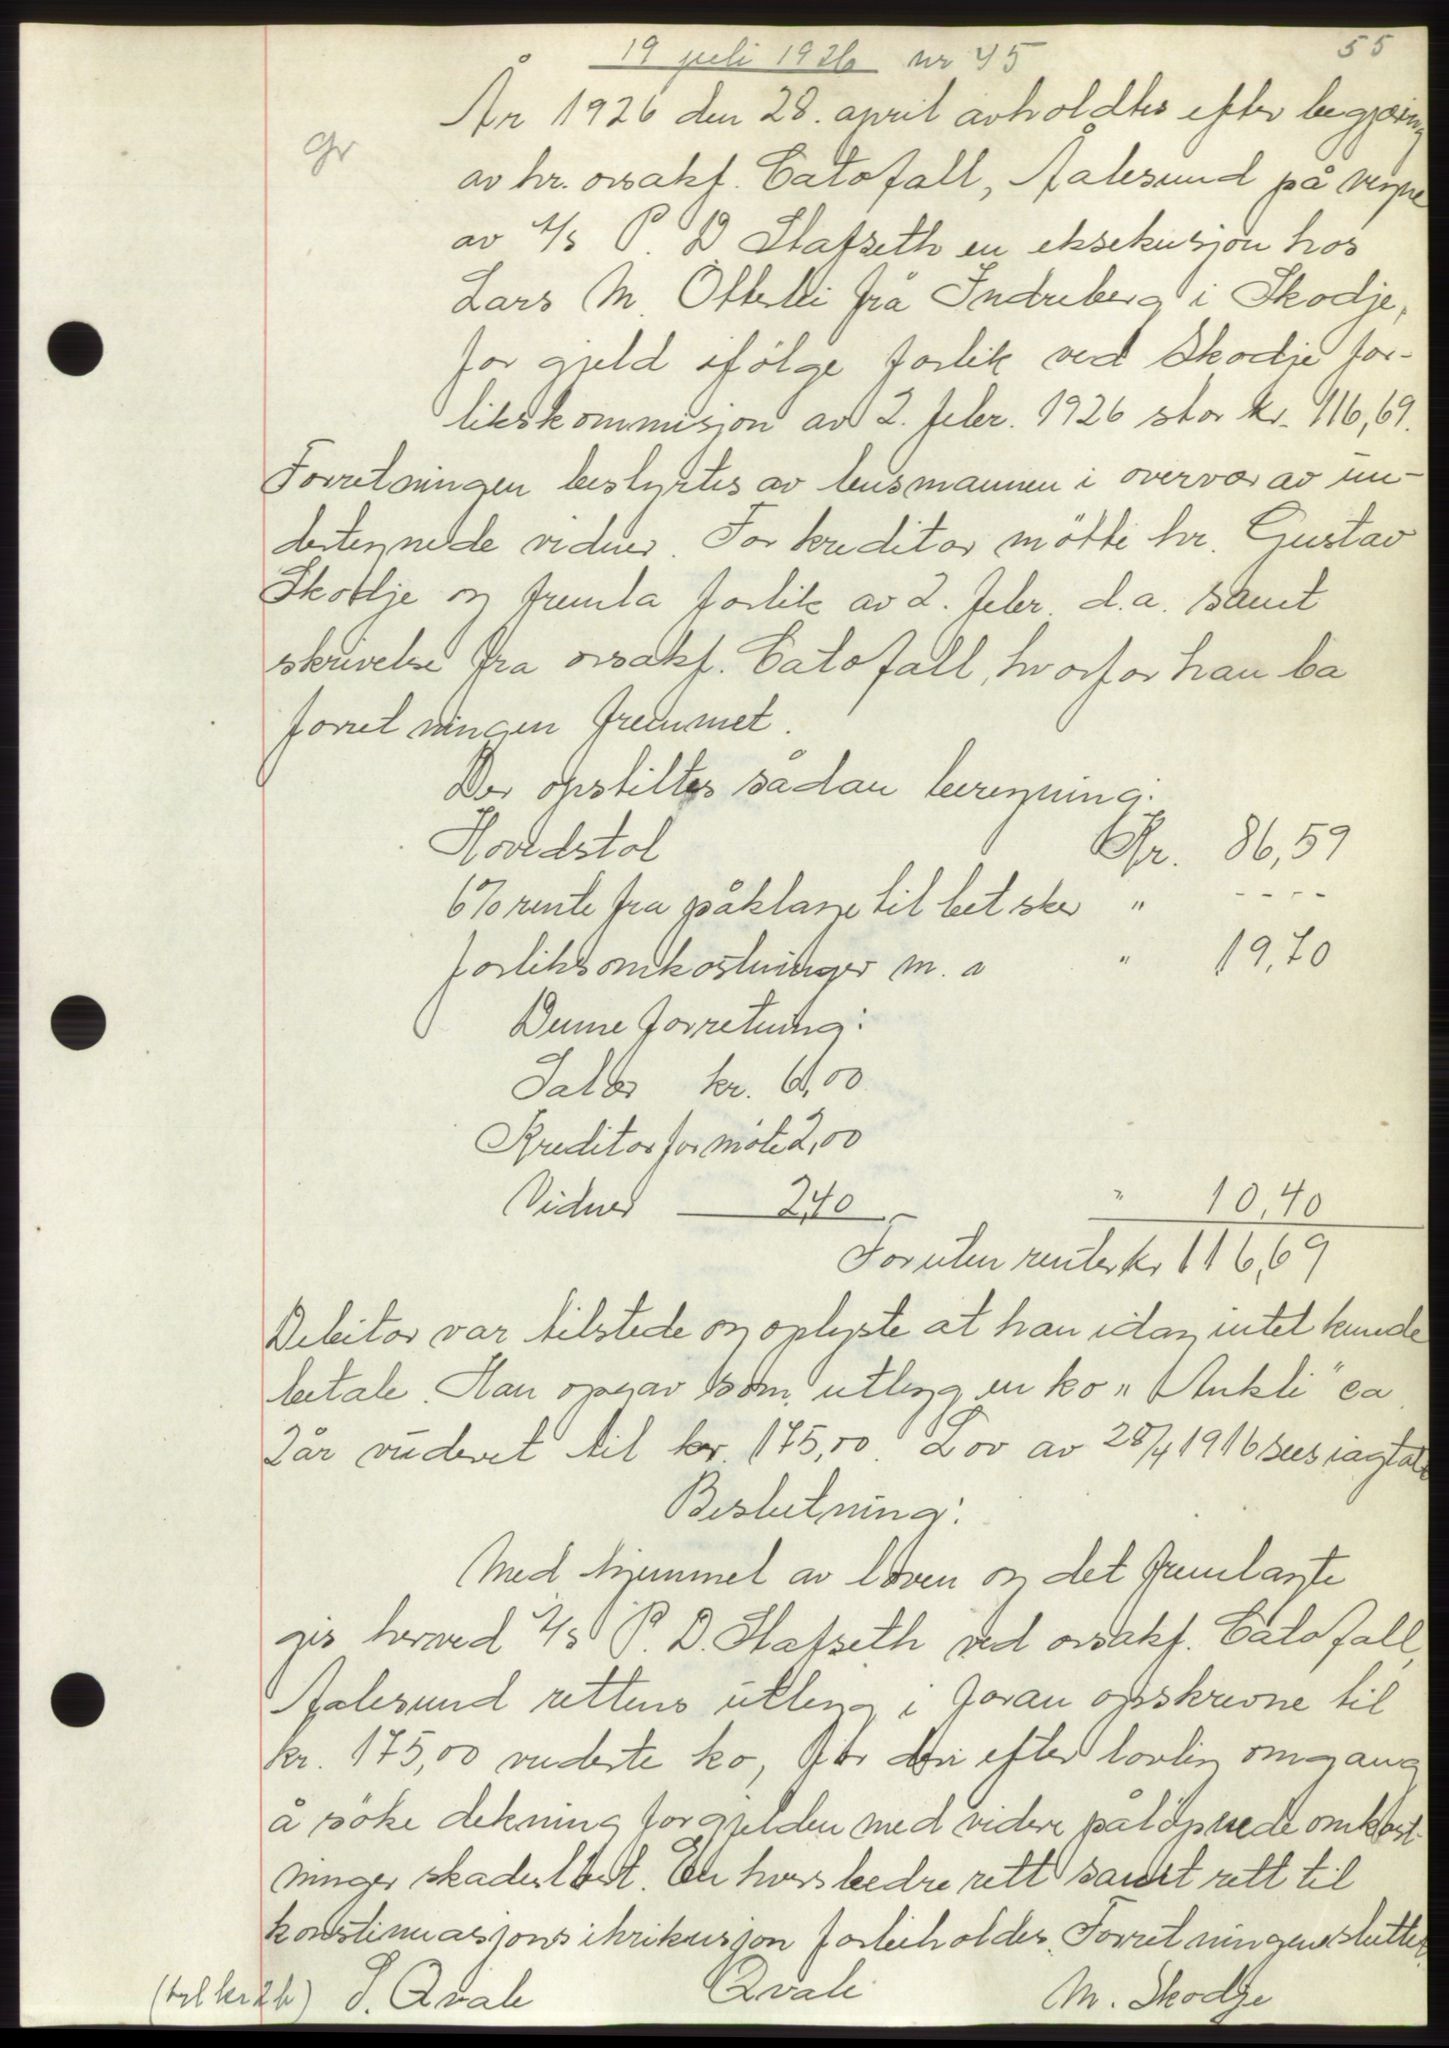 55
19 juli 1926 nr 45
År 1926 den 28. april avholdtes efter begjæring
gr
av hr. orsakf. Cato Fall, Ålesund på vegne
av A/s P. D Slafseth en eksekusjon hos
Lars M. Otterlei frå Indreberg i Skodje,
for gjeld ifölge forlik ved Skodje for-
likskommisjon av 2. febr. 1926 stor kr. 116,69.
Forretningen bestyrtes av lensmannen i overvær av un-
dertegnede vidner. For kreditor mötte hr. Gustav
Skodje og fremla forlik av 2. febr. d.a. samt
skrivelse fra orsakf. Cato Fall, hvorfor han ba
forretningen fremmet.
Der opstiltes sådan beregning:
Hovedstol Kr. 86,59
6% rente fra påklage til bet sker " - - - -
forliksomkostninger m. a " 19,70
Denne forretning:
Salær kr. 6,00
Kreditor for möte 2,00
Vidner 2,40 " 10,40
Foruten renter kr 116,69
Debitor var tilstede og oplyste at han idag intet kunde
betale. Han opgav som utlegg en ko "Ankli" ca
2 år vurderet til kr. 175,00. Lov av 28/4 1916 sees iagtatt
Beslutning:
Med hjemmel av loven og det fremlagte
gis herved A/s P. D. Slafseth ved orsakf. Cato Fall,
Aalesund rettens utlegg i foran opskrevne til
kr. 175,00 vurderte ko, for deri efter lovlig omgang
å söke dekning for gjelden med videre pålöpnede omkost-
ninger skadeslöst. En hvers bedre rett samt rett til
konstinuasjons ekseskusjon forbeholdes. Forretningen sluttet.
(tgl kr 2 b) S. Qvale Qvale M. Skodje